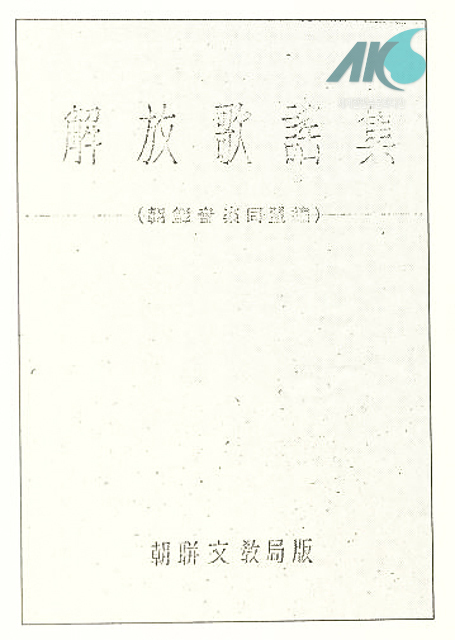 AKS
解放歌謠集
(朝鮮音樂同盟編)
朝聯文敎局版